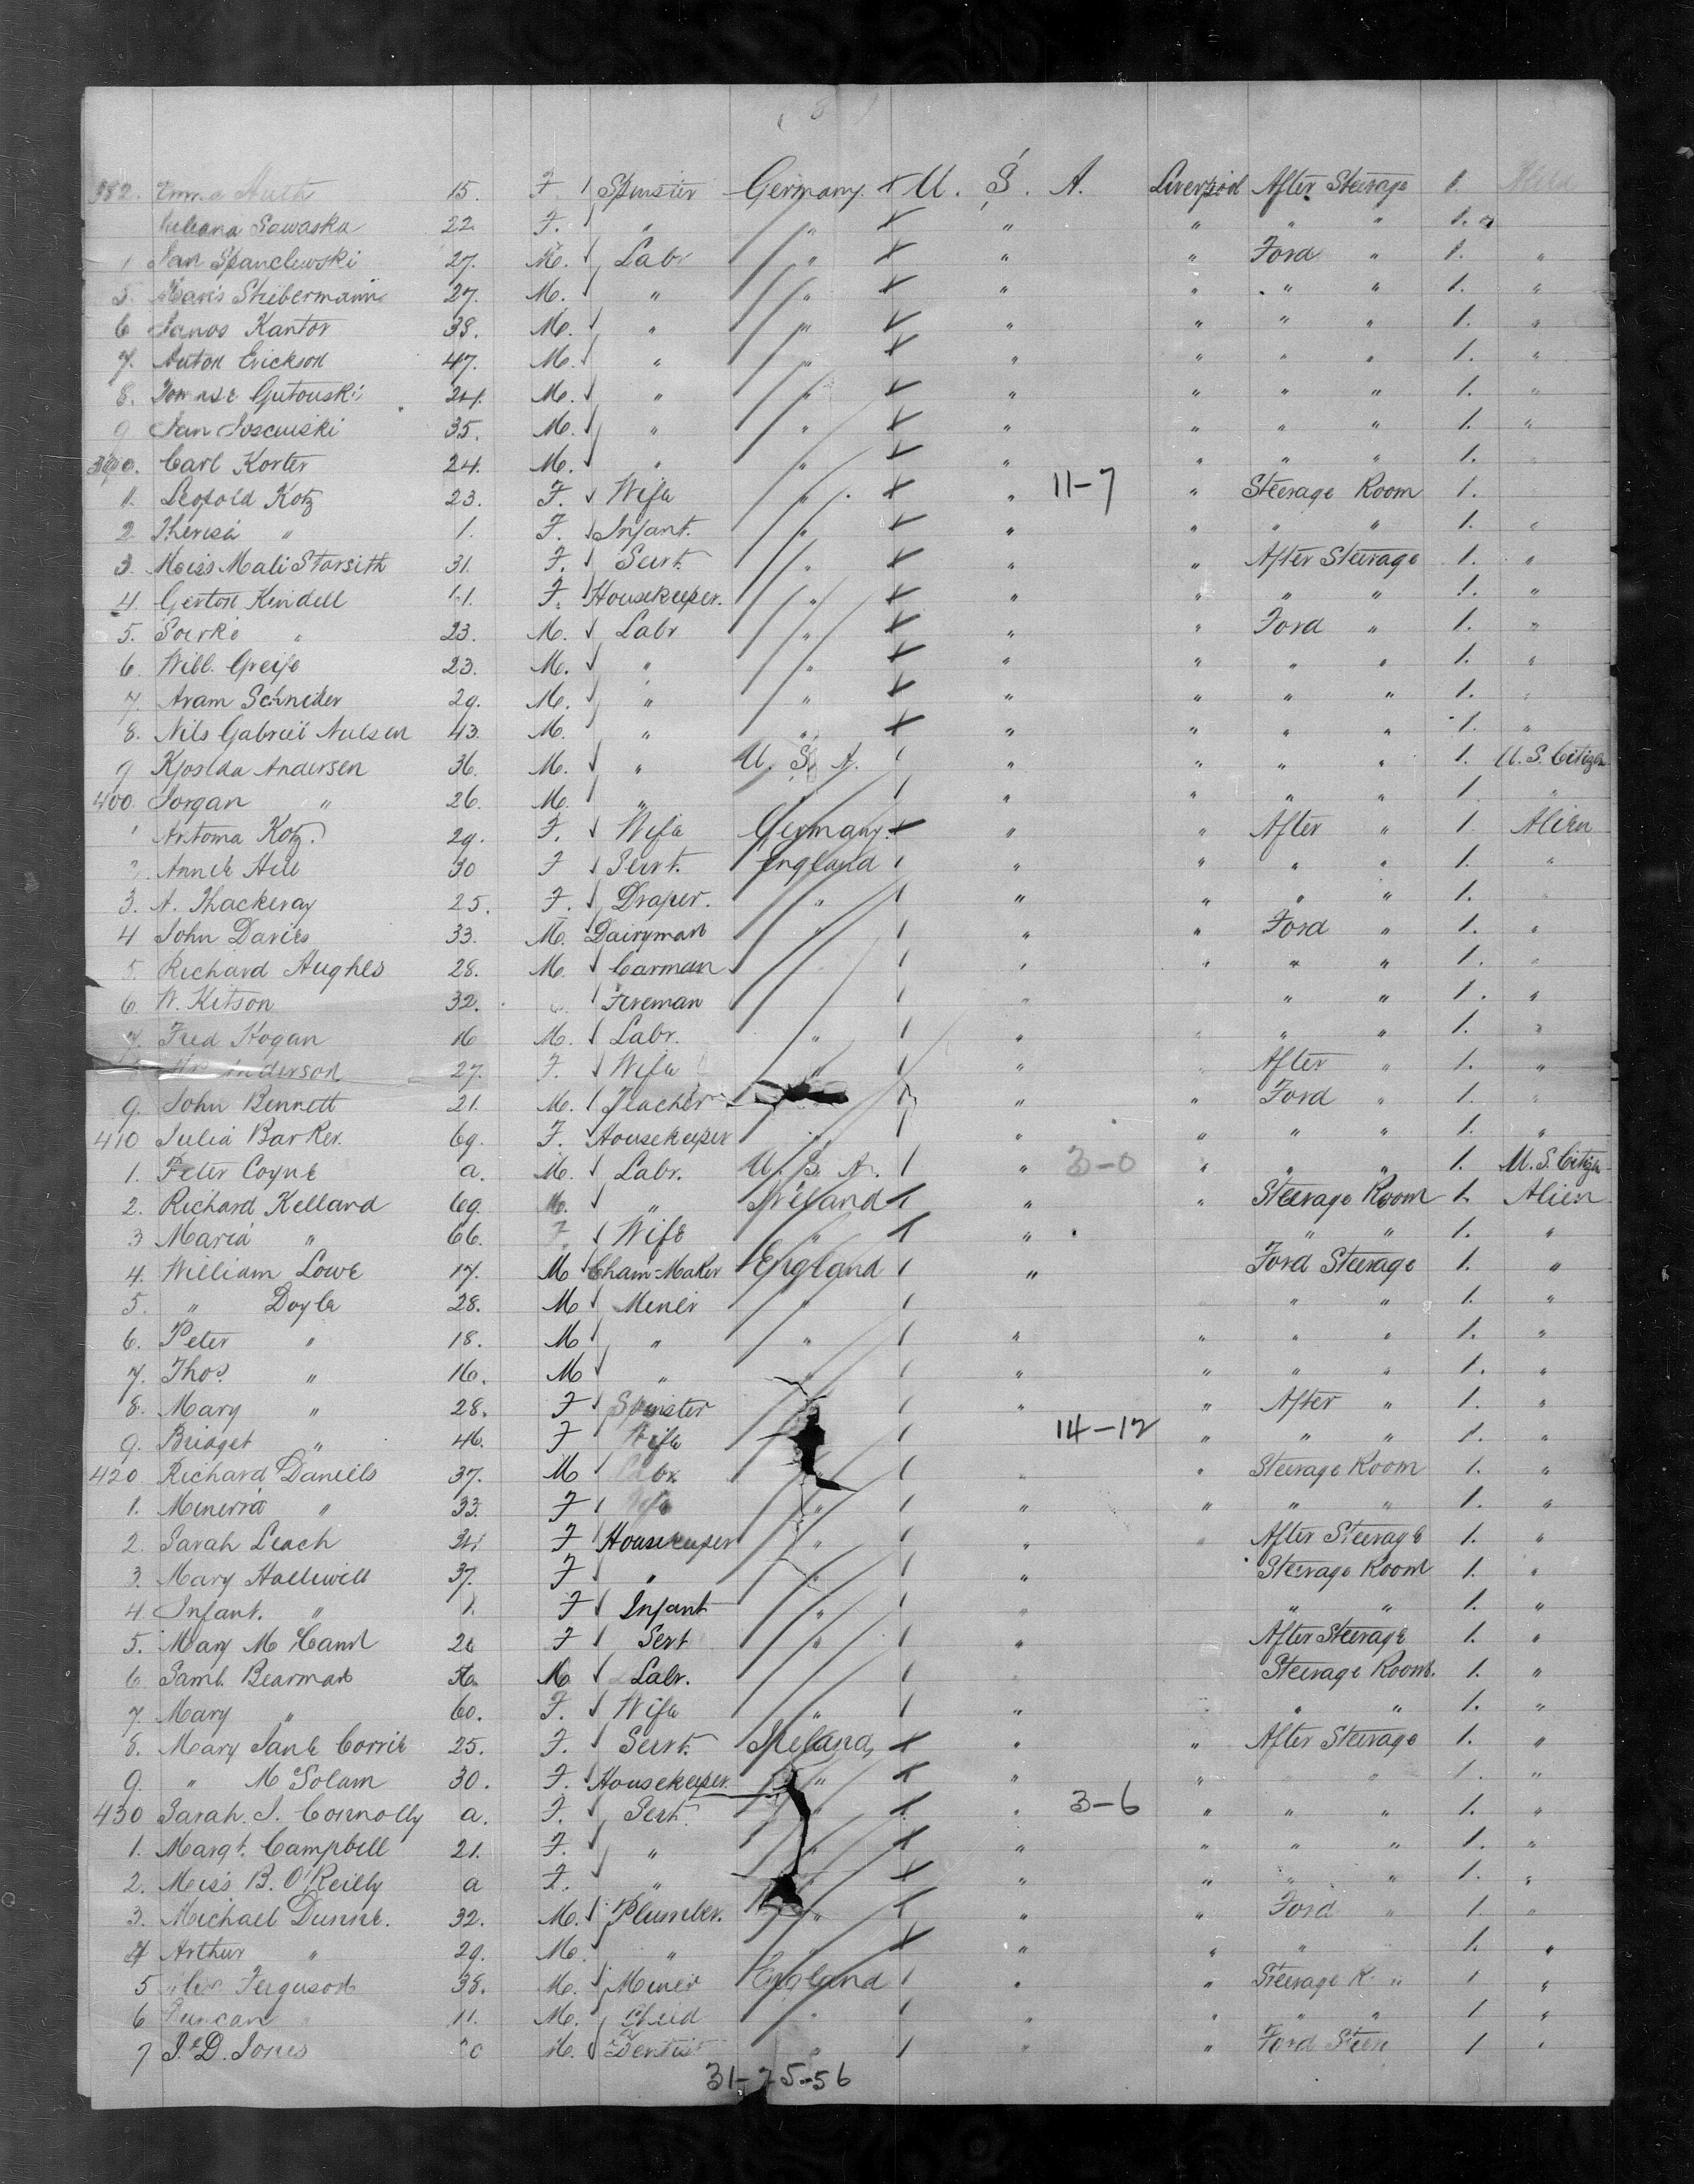 ( 8 )
382. Emma Muth 15. F Spinster Germany. U. S. A. Liverpool After Steerage 1.
Sawaska 22 F. " " " " " " 1.
Jan Spanclewski 27. M. Labr " " " Ford " 1. "
5. Stribermann 27. M. " " " " " " 1. "
6 Janos Kantor 38. M. " " " " " " 1. "
7. Anton Erickson 47. M. " " " " " " 1. "
8. Gutouski 24. M. " " " " " " 1. "
9 Jan 35. M. " " " " " " 1. "
390. Carl Korter 24. M. " " " " " " 1. "
1. Leopold Kotz 23. F. Wife " " 11-7 " Steerage Room 1.
2. Theresa " 1. F. Infant. " " " " " 1. "
3. Miss Mali Starsith 31. F. Sert. " " " After Steerage 1. "
4. Gerton Kindell 11. F. Housekeeper. " " " " " 1. "
5. " 23. M. Labr " " " Ford " 1. "
6. Will. Greife 23. M. " " " " " " 1. "
7. Aram Schneider 29. M. " " " " " " 1. "
8. Nils Gabriel Nielsen 43. M. " " " " " " 1. "
9 Andersen 36. M. " U. S. A. " " " " 1. U. S. Citizen
400. Jorgan " 26. M. " " " " " " 1. "
1 Antoma Kotz. 29. F. Wife Germany. " " After " 1. Alien
2. Annie Hill 30 F Sert. England " " " " 1. "
3. A. Thackeray 25. F. Draper. " " " " " 1. "
4 John Davies 33. M. Dairyman " " " Ford " 1. "
5. Richard Hughes 28. M. Carman " " " " 1. "
6. W. Kitson 32. Fireman " " " 1. "
7. Fred Hogan 16 M. Labr. " " " " " 1. "
Anderson 27. F. Wife " " " After " 1. "
9. John Bennett 21. M. Teacher " " Ford " 1. "
410 Julia Barker. 69. F. Housekeeper " " " " " 1. "
1. Peter Coyne a. M. Labr. U. S. A. " 3-0 " " " 1. U. S. Citizen
2. Richard Kelland 69. M. " Ireland " " Steerage Room 1. Alien
3 Maria " 66. F. Wife " " " " 1. "
4. William Lowe 17. M Cham=Maker England " Ford Steerage 1. "
5. " Doyle 28. M Miner " " " 1. "
6. Peter " 18. M " " " " " " 1. "
7. Thos. " 16. M " " " " " " 1. "
8. Mary " 28. F Spinster " " After " 1. "
9. Bridget " 46. F Wife 14-12 " " " 1. "
420. Richard Daniels 37. M Labr. " " Steerage Room 1. "
1. Minerva " 33. F Wife " " " " " 1. "
2. Sarah Leach 34 F Housekeeper " " " After Steerage 1. "
3. Mary Halliwell 37. F " " " Steerage Room 1. "
4. Infant. " 1. F Infant " " " " 1. "
5. Mary McCann 26 F Sert " " After Steerage 1. "
6. Saml. Bearman M Labr. " Steerage Room. 1. "
7. Mary " 60. F. Wife " " " " 1. "
8. Mary Jane Corrie 25. F. Sert. Ireland " " After Steerage 1. "
9. " McSolam 30. F. Housekeeper. " " " " " 1. "
430 Sarah. J. Connolly a. F. Sert. " " 3-6 " " " 1. "
1. Margt. Campbell 21. F. " " " " " " 1. "
2. Miss B. O'Reilly a F. " " " " " 1. "
3. Michael Dunne. 32. M. Plumber. " " " Ford " 1. "
4 Arthur " 29. M. " " " " " 1. "
5 Ferguson 38. M. Miner England " " Steerage R. " 1 "
6 Duncan 11. M. Child " " " " " 1 "
7 J. D. Jones M. Dentist " " " Ford Steer 1 "
31-25-56